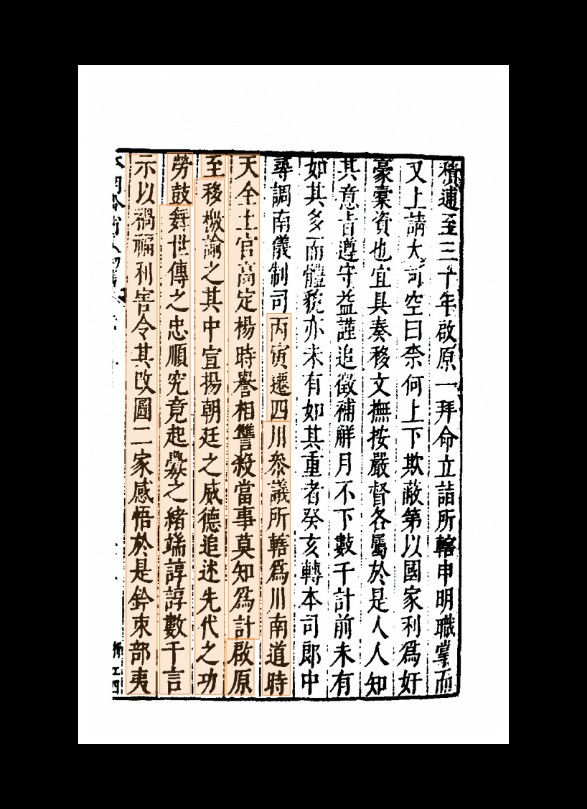 積逋至三十年啟原一拜命立詰所轄申明職掌而
又上請大司空曰柰何上下欺蔽第以國家利爲奸
豪橐資也宜具奏移文撫按嚴督各屬於是人人知
其意旨遵守益謹追徵補解月不下數千計前未有
如其多而體貌亦未有如其重者癸亥轉本司郎中
尋調南儀制司丙寅遷四川叅議所轄爲川南道時
天全土官高定楊時譽相讐殺當事莫知爲計啟原
至移檄諭之其中宣揚朝廷之威德追述先代之功
勞鼓舞世傳之忠順究竟起釁之緒端諄諄數千言
示以禍福利害令其改圖二家感悟於是鈐束部夷